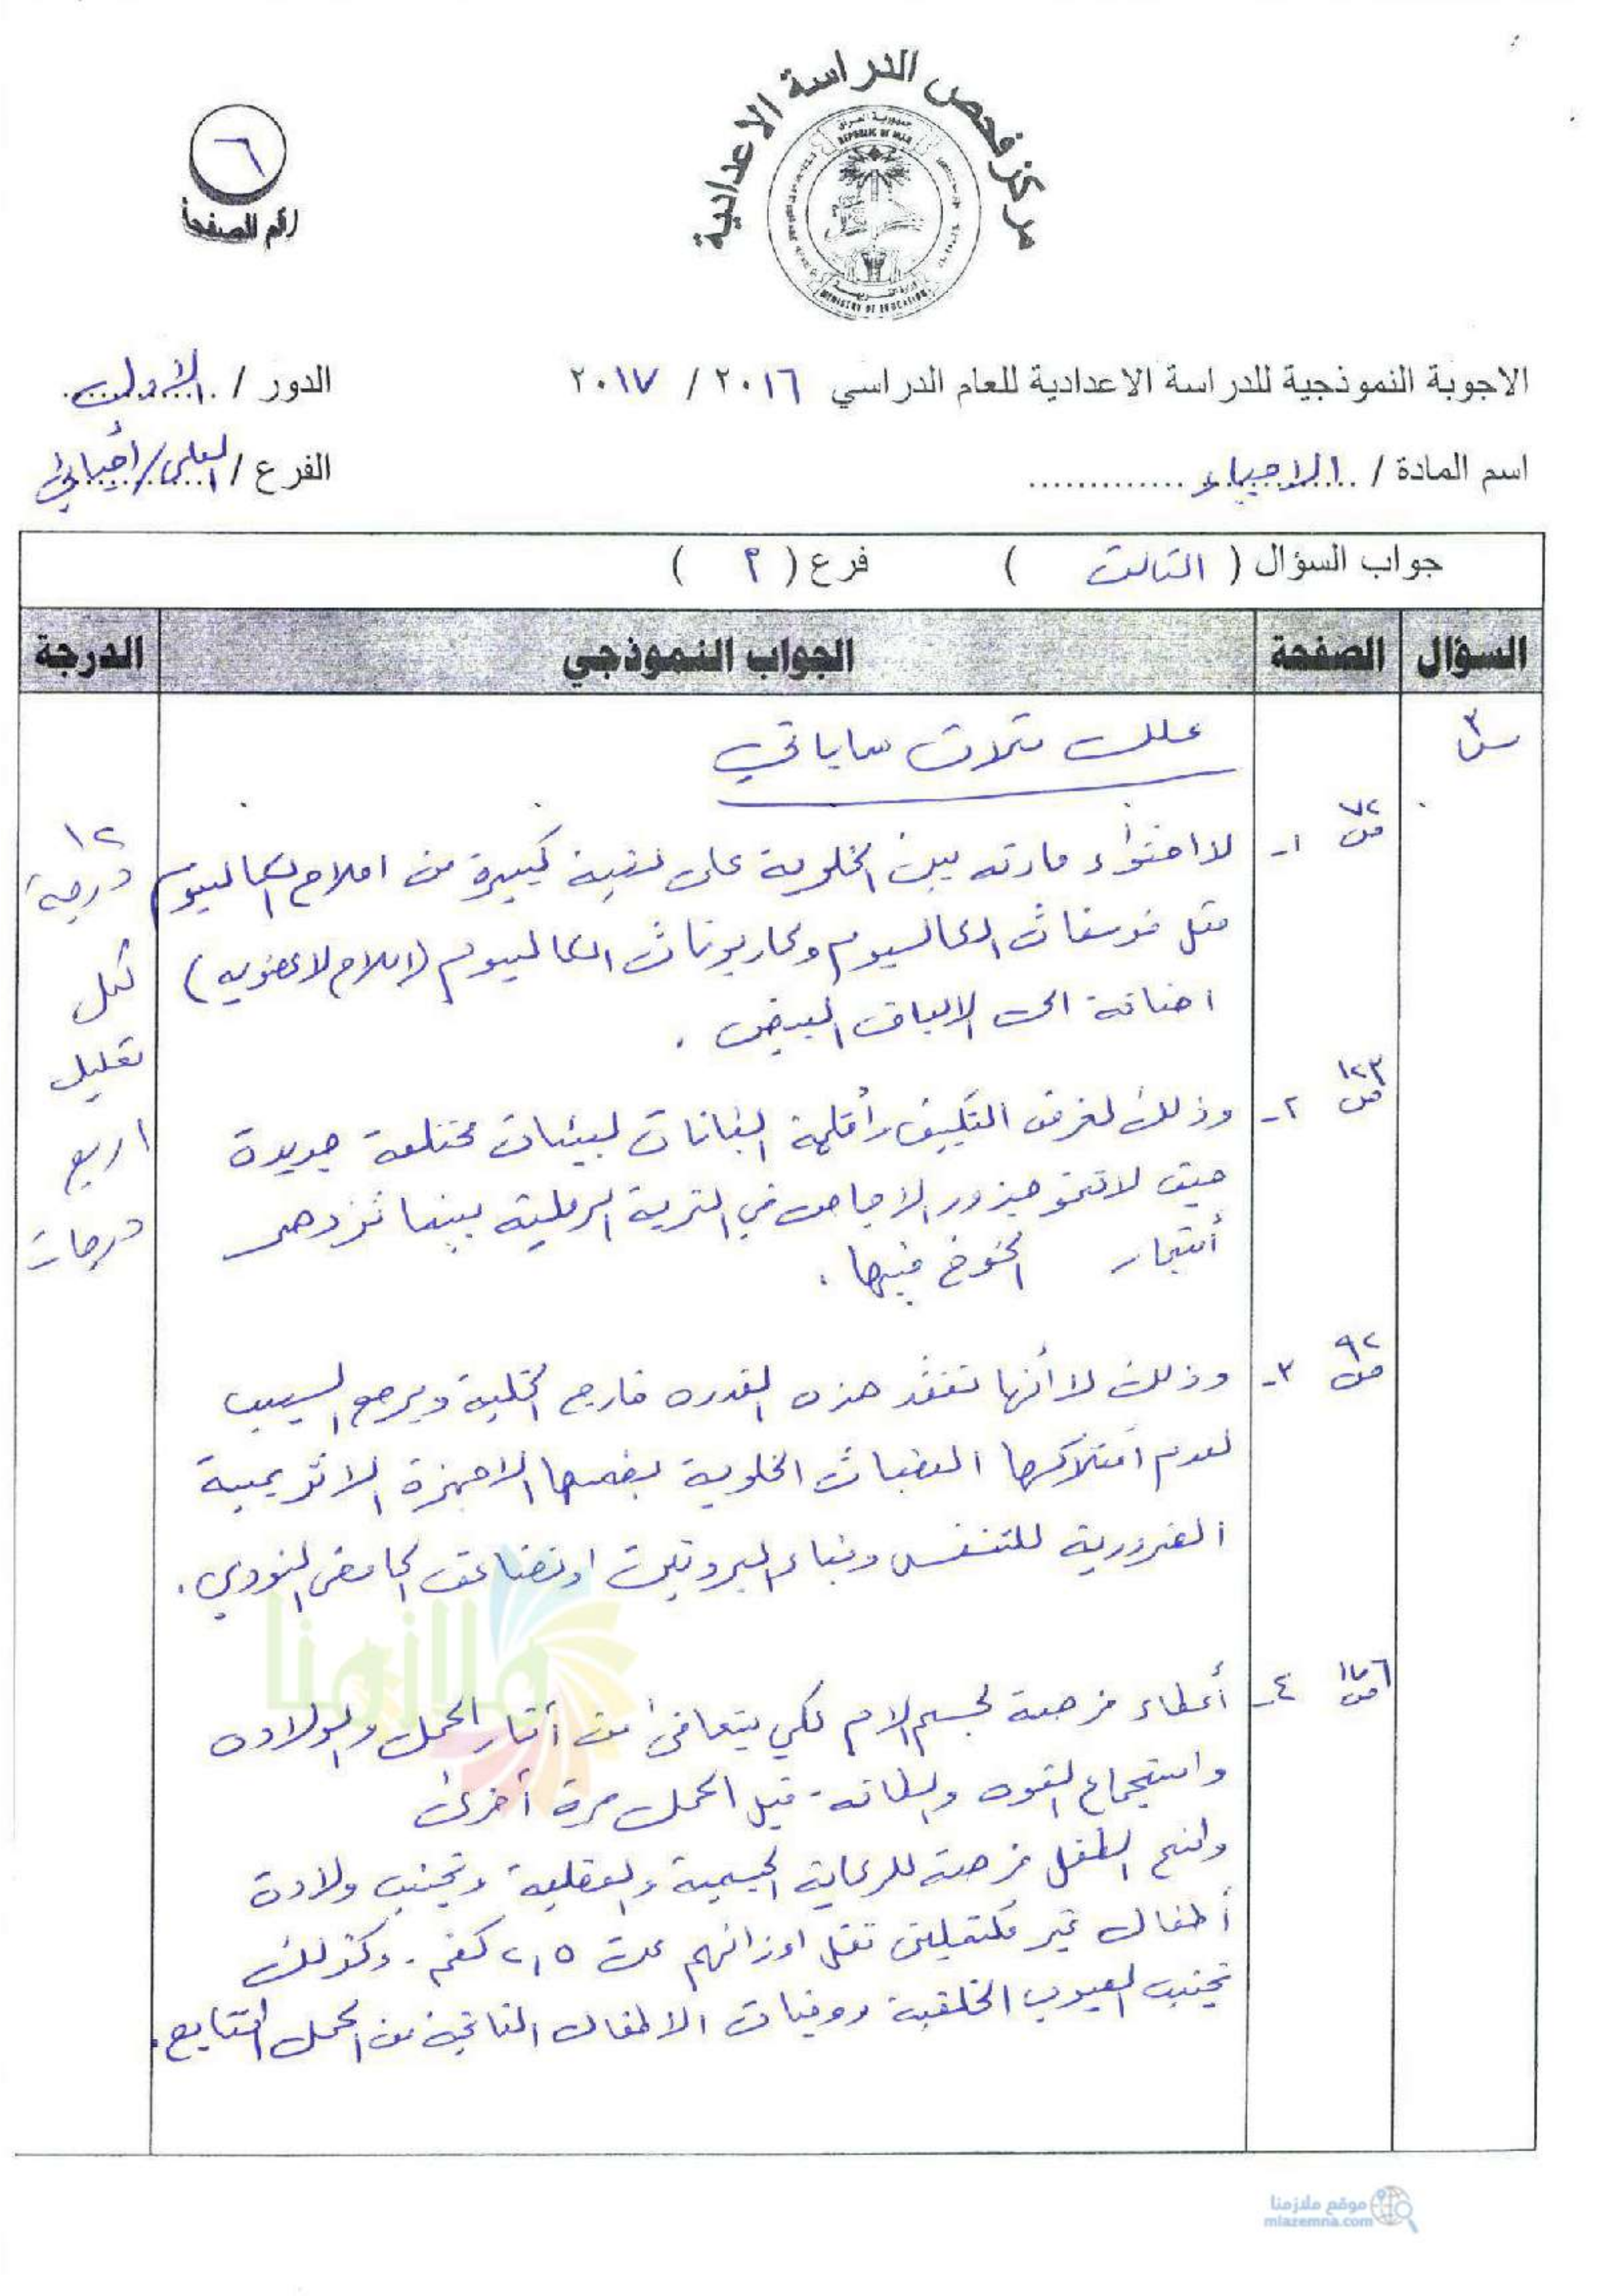 مركز فحص الدراسة الاعدادية
جمهورية العراق
REPUBLIC OF IRAQ
MINISTRY OF EDUCATION
٦
رقم الصفحة
الاجوبة النموذجية للدراسة الاعدادية للعام الدراسي ٢٠١٦ / ٢٠١٧
الدور / الاول
اسم المادة / الاحياء
الفرع / العلمي/أحيائي
جواب السؤال ( الثالث ) فرع ( ٢ )
السؤال الصفحة الجواب النموذجي الدرجة
س٣
علل ثلاث مما يأتي
ص ٧٢
١- لاحتواء مادته بين الخلوية على نسبة كبيرة من املاح الكالسيوم
مثل فوسفات الكالسيوم وكاربونات الكالسيوم (املاح لاعضويه)
اضافة الى الالياف البيض .
ص ١٢٣
٢- وذلك لغرض التكييف وأقلمة النباتات لبيئات مختلفة جديدة
حيث لا تنمو جذور الاجاص في التربة الرملية بينما تزدهر
أشجار الخوخ فيها .
ص ٩٢
٣- وذلك لأنها تفقد هذه القدره خارج الخلية ويرجع السبب
لعدم امتلاكها العضيات الخلوية بضمنها الاجهزة الانزيمية
الضرورية للتنفس وبناء البروتين او تضاعف الحامض النووي .
٤- أعطاء فرصة لجسم الام لكي يتعافى من آثار الحمل والولاده
واستجماع القوه والطاقه قبل الحمل مرة أخرى
ولمنح الطفل فرصة للرعاية الجسمية والعقلية وتجنب ولادة
أطفال غير مكتملين تقل اوزانهم عن ٢,٥ كغم . وكذلك
تجنب العيوب الخلقية ووفيات الاطفال الناتجة من الحمل المتتابع .
١٢
درجة
لكل
تعليل
اربع
درجات
ملازمنا
موقع ملازمنا
mlazemna.com